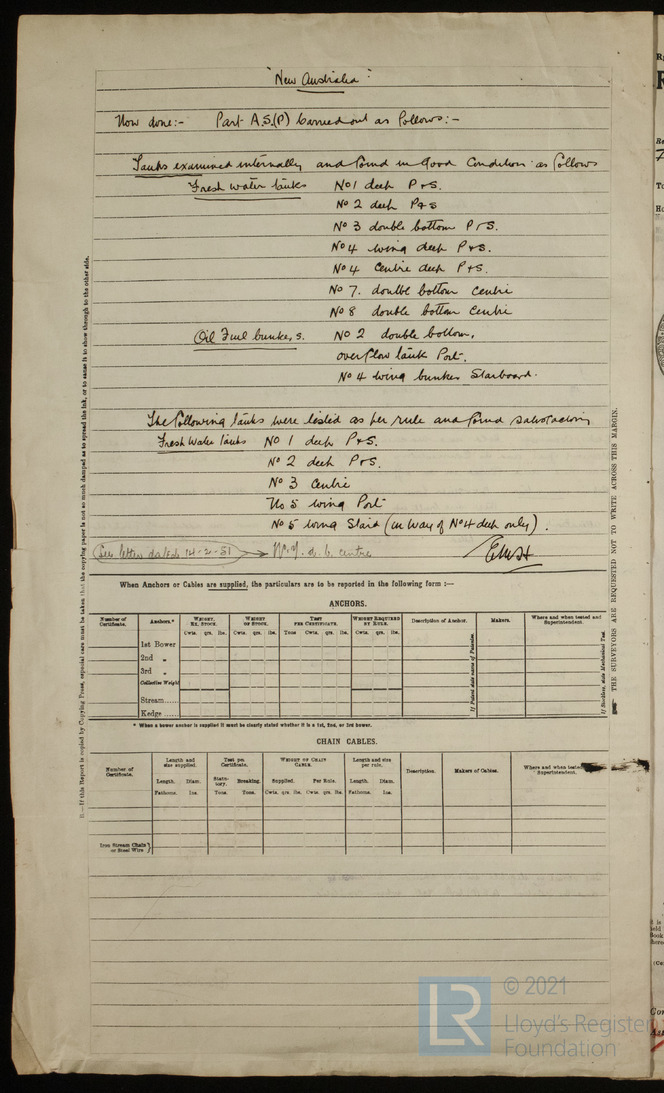 "New Australia"
Now done:- Part A.S.(P) Carried out as follows:-
Tanks examined internally and found in Good Condition as follows
Fresh water tanks No 1 deep P & S.
No 2 deep P & S
No 3 double bottom P & S.
No 4 wing deep P & S.
No 4 Centre deep P & S.
No 7. double bottom Centre
No 8 double bottom Centre
Oil Fuel bunkers. No 2 double bottom,
overflow tank Port.
No 4 wing bunker Starboard.
The following tanks were tested as per rule and found satisfactory
Fresh Water Tanks No 1 deep P & S.
No 2 deep P & S.
No 3 Centre
No 5 wing Port
No 5 wing Starb (in way of No 4 deep only).
See letter dated 14-2-51 → No. 7 d. b. centre
When Anchors or Cables are supplied, the particulars are to be reported in the following form :—
ANCHORS.
Number of Certificate. Anchors.* WEIGHT, EX. STOCK. WEIGHT OF STOCK. TEST PER CERTIFICATE. WEIGHT REQUIRED BY RULE. Description of Anchor. Makers. Where and when tested and Superintendent.
Cwts. qrs. lbs. Cwts. qrs. lbs. Tons Cwts. qrs. lbs. Cwts. qrs. lbs.
1st Bower
2nd „
3rd „
Collective Weight
Stream
Kedge
If Patent state name of Patentee.
If Stockless, state Mechanical Test.
* When a bower anchor is supplied it must be clearly stated whether it is a 1st, 2nd, or 3rd bower.
CHAIN CABLES.
Number of Certificate. Length and size supplied. Test per Certificate. WEIGHT OF CHAIN CABLE. Length and size per rule. Description. Makers of Cables. Where and when tested Superintendent.
Length. Diam. Statutory. Breaking. Supplied. Per Rule. Length. Diam.
Fathoms. Ins. Tons. Tons. Cwts. qrs. lbs. Cwts. qrs. lbs. Fathoms. Ins.
Iron Stream Chain or Steel Wire
B.—If this Report is copied by Copying Press, especial care must be taken that the copying paper is not so much damped as to spread the ink, or to cause it to show through to the other side.
THE SURVEYORS ARE REQUESTED NOT TO WRITE ACROSS THIS MARGIN.
LR
© 2021
Lloyd's Register
Foundation